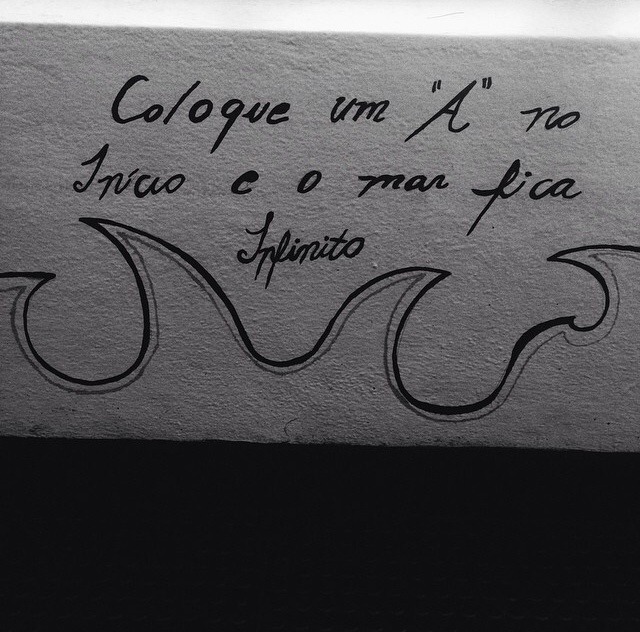 Coloque um "A" no
Início e o mar fica
Infinito